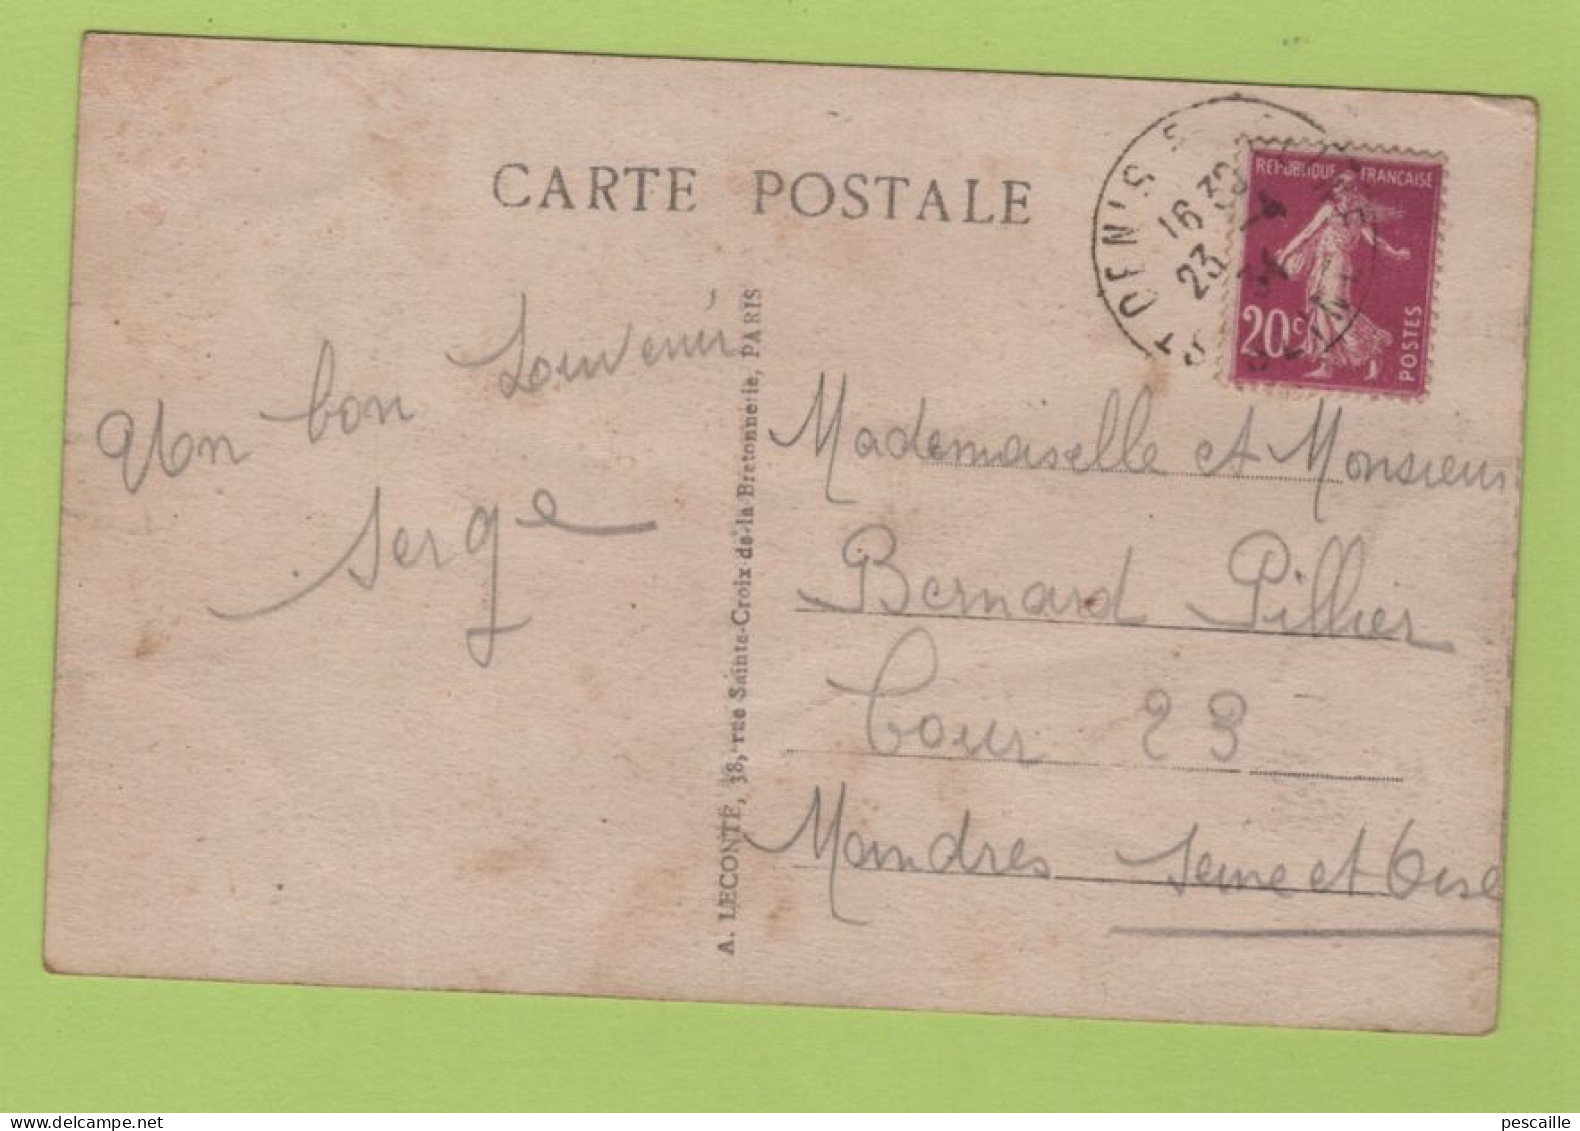 CARTE POSTALE
Un bon souvenir
Serge
A. LECONTE, 38, rue Sainte-Croix-de-la-Bretonnerie, PARIS
REPUBLIQUE FRANCAISE
20c
POSTES
ST DENIS
16 30
23
Mademoiselle et Monsieur
Bernard Pillier
Cour 23
Mandres Seine et Oise
pescaille